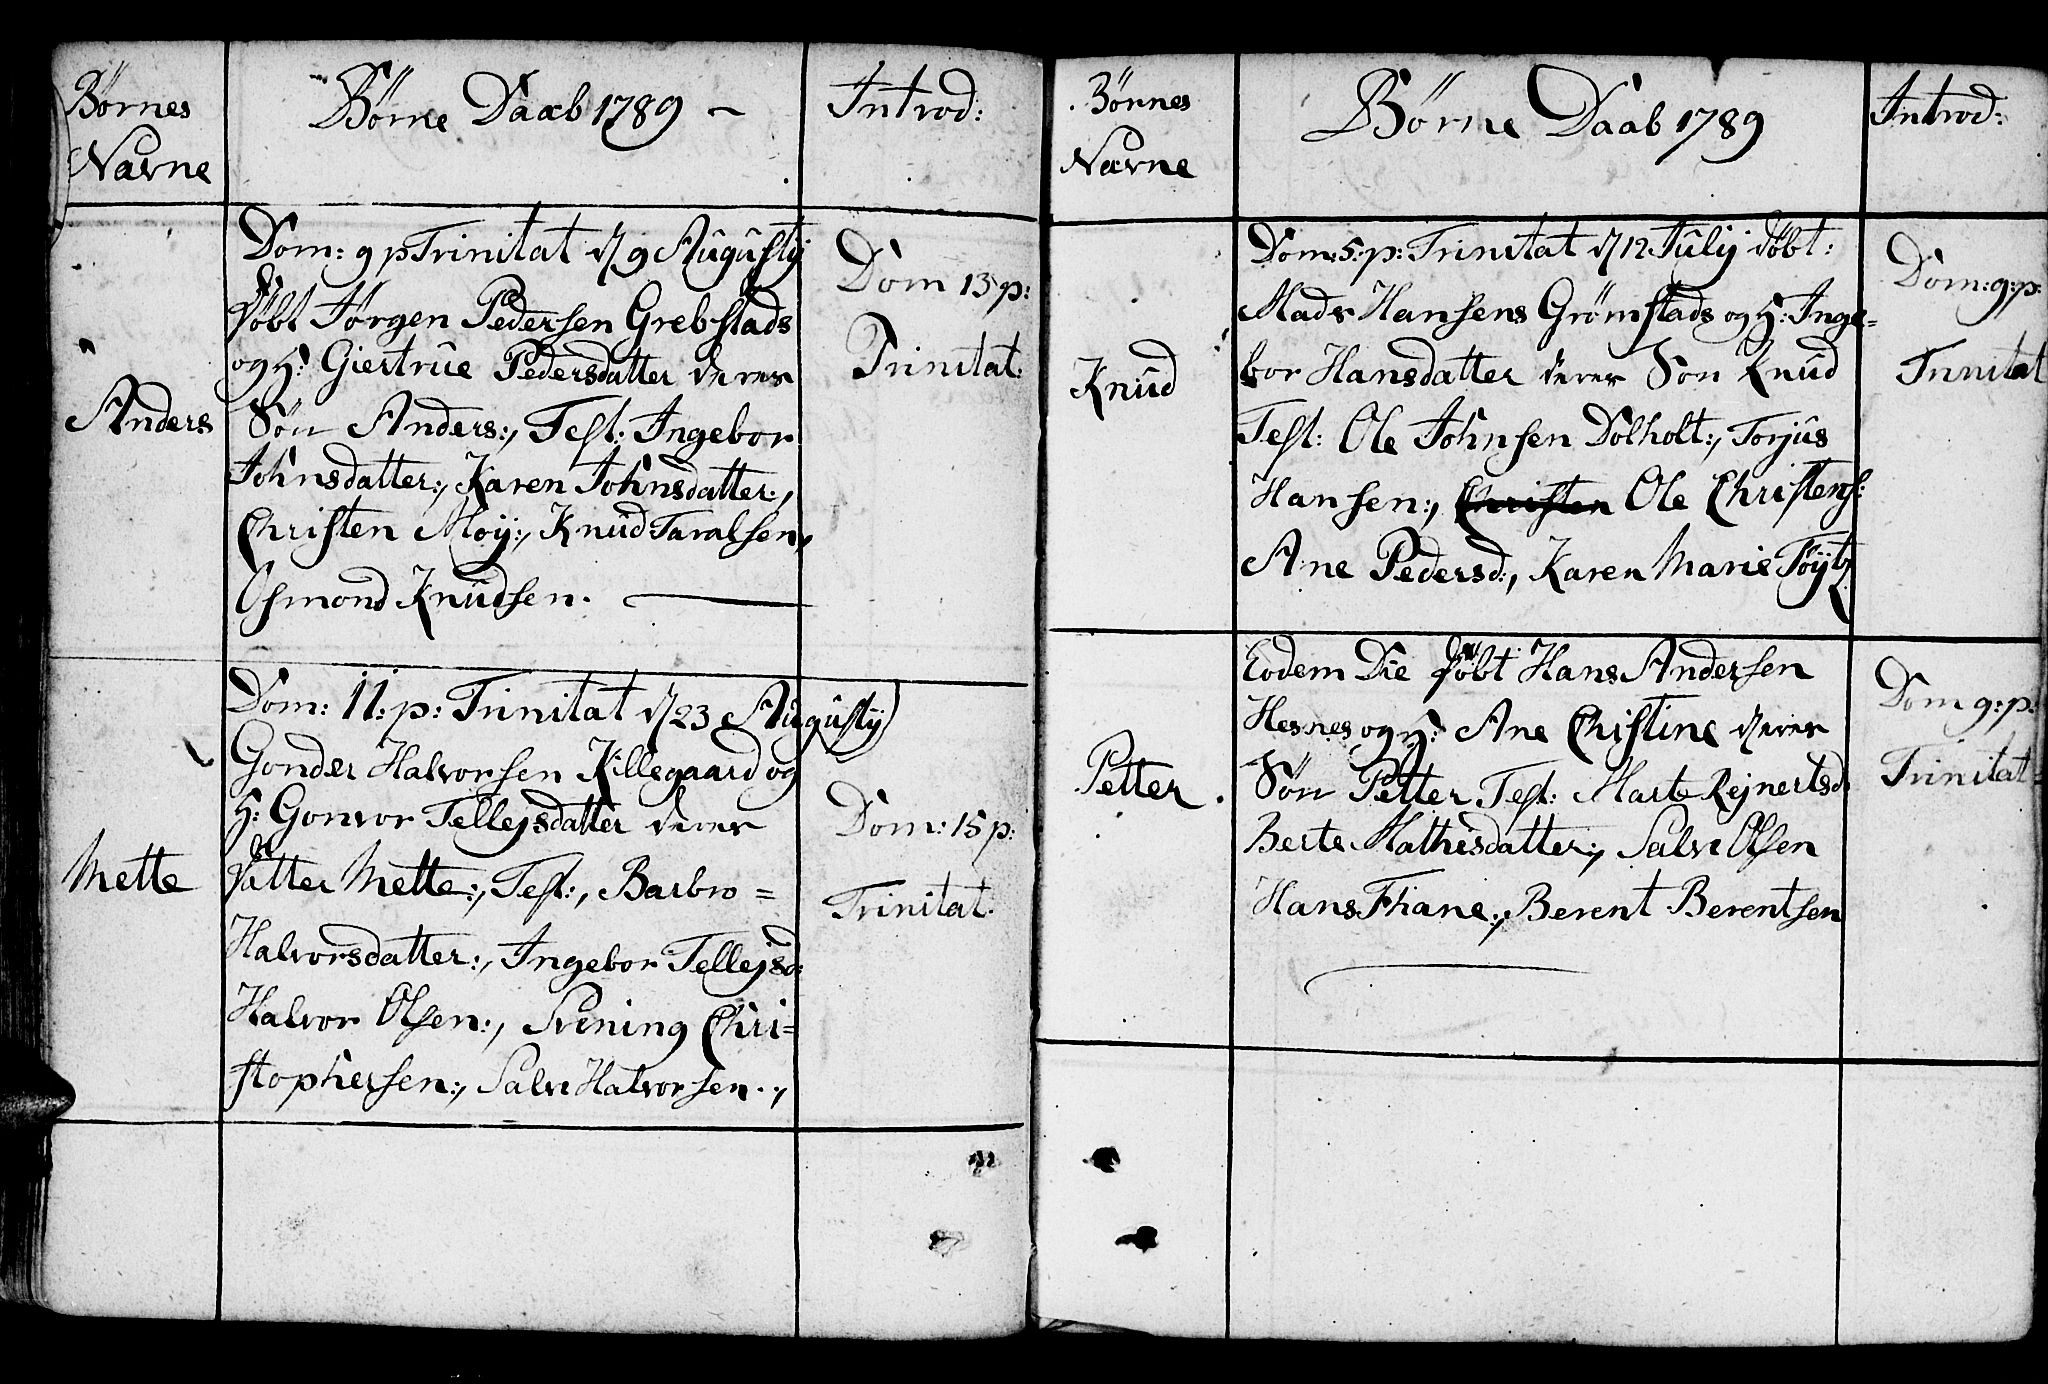 Börnes
Navne
Börne Daab 1789 -
Introd:
Anders
Dom: 9 p Trinitat d 9 Augustij
döbt Jörgen Pedersen Grebstads
og H: Giertrue Pedersdatter deres
Sön Anders:, Test: Ingebor
Johnsdatter:, Karen Johnsdatter:,
Christen Moÿ:, Knud Taralsen,
Osmond Knudsen.
Dom 13 p:
Trinitat:
Mette
Dom: 11: p: Trinitat d 23 Augustij
Gonder Halvorsen Killegaard og
H: Gonvor Tellejsdatter deres
datter Mette:, Test:, Barbro =
Halvorsdatter:, Ingebor Tellejsd:
Halvor Olsen:, Svening Chri=
stophersen:, Salve Halvorsen.,
Dom: 15 p:
Trinitat.
Börnes
Navne
Börne Daab 1789
Introd:
Knud
Dom: 5: p: Trinitat d 12 Julij döbt:
Mads Hansens Grömstads og H: Inge=
bor Hansdatter deres Son Knud
Test: Ole Johnsen Dolholt:, Torjus
Hansen:, Christen Ole Christens:
Ane Pedersd:, Karen Marie
Dom: 9: p:
Trinitat
Petter
Eodem Die döbt Hans Andersen
Hesnes og H: Ane Christine deres
Sön Petter Test: Marte Rejnertsd:
Berte Mathisdatter:, Salve Olsen
Hans Fhane:, Berent Berentsen
Dom 9: p:
Trinitat